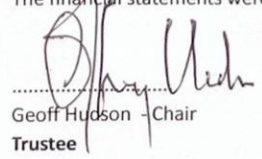 The financial statements were
Geoff Hudson - Chair
Trustee